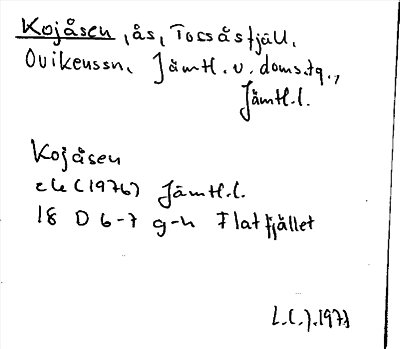 Kojåsen, ås, Torsåsfjäll.
Ovikenssn, Jämtl. v. doms.tg.,
Jämtl.l.
Kojåsen
ek (1976) Jämtl.l.
18 D 6-7 g-h Flatfjället
1977